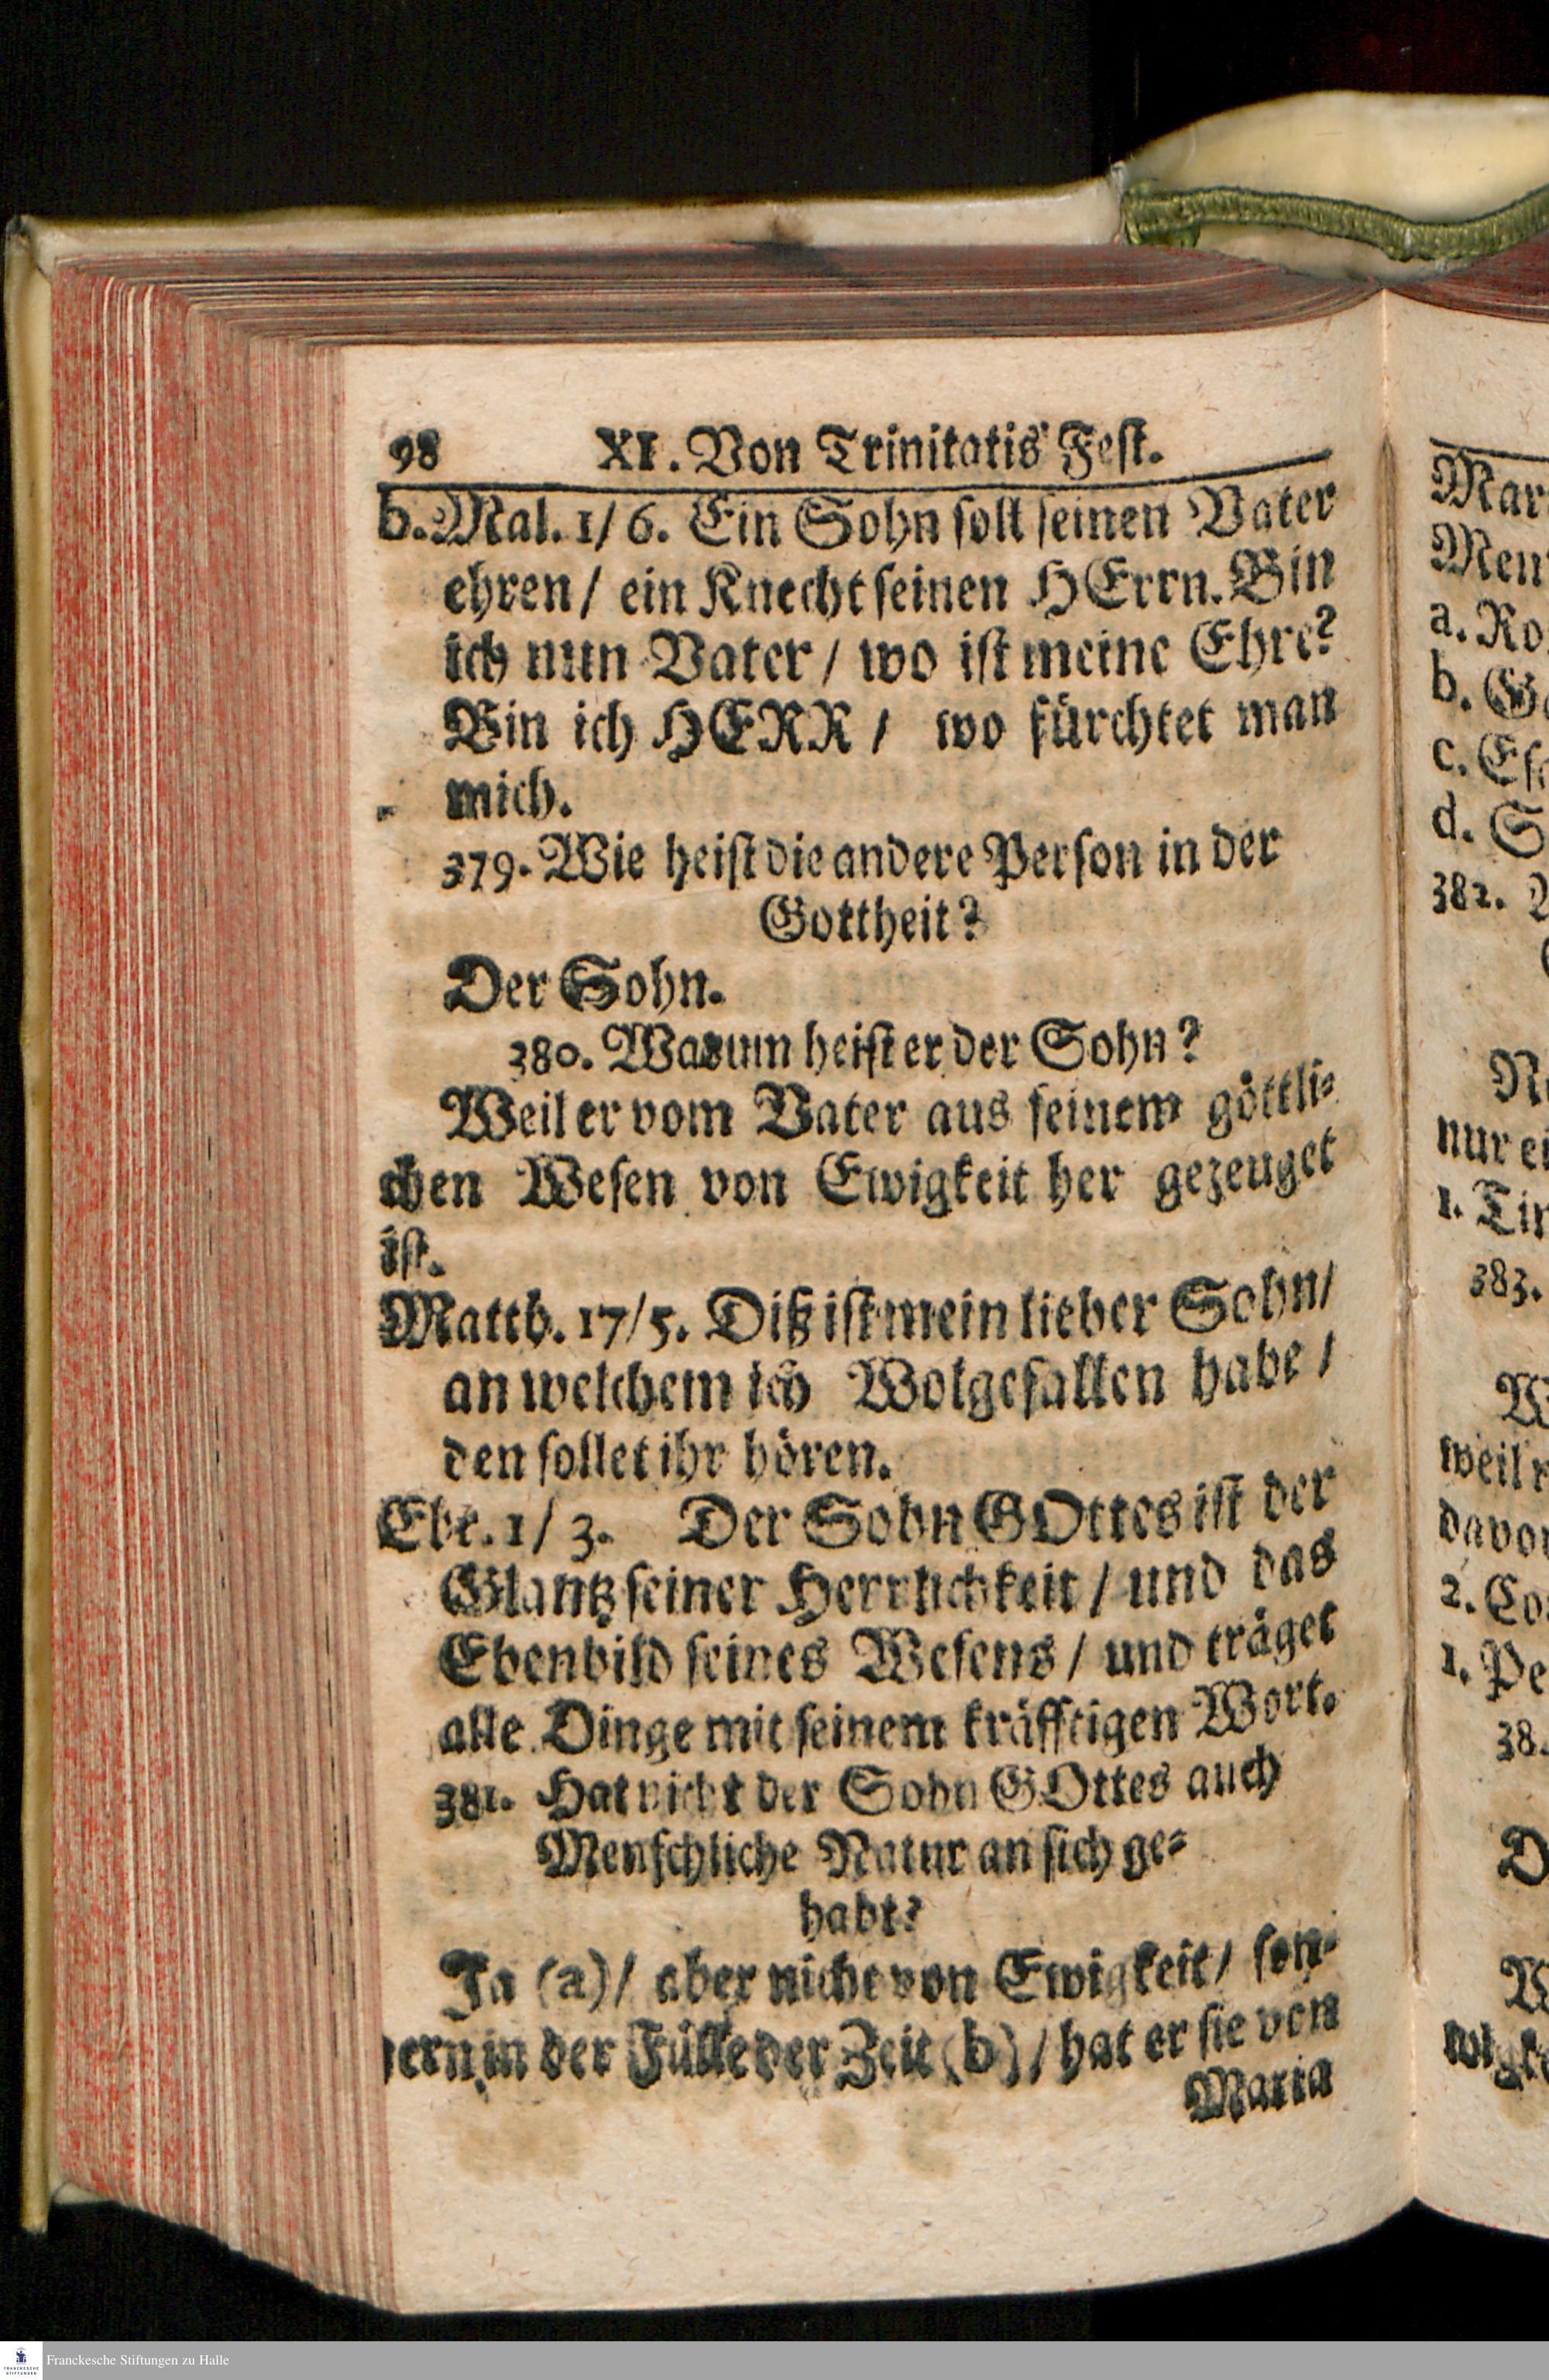 98 XI. Von Trinitatis Fest.
b. Mal. 1/6. Ein Sohn soll seinen Vater
ehren / ein Knecht seinen HErrn. Bin
ich nun Vater / wo ist meine Ehre?
Bin ich HERR / wo fürchtet man
mich.
379. Wie heist die andere Person in der
Gottheit?
Der Sohn.
380. Warum heist er der Sohn?
Weil er vom Vater aus seinem göttli-
chen Wesen von Ewigkeit her gezeuget
ist.
Matth. 17/5. Diß ist mein lieber Sohn/
an welchem ich Wolgefallen habe /
den sollet ihr hören.
Ebr. 1/3. Der Sohn GOttes ist der
Glantz seiner Herrlichkeit / und das
Ebenbild seines Wesens / und träget
alle Dinge mit seinem kräfftigen Wort.
381. Hat nicht der Sohn GOttes auch
Menschliche Natur an sich ge-
habt?
Ja (a) / aber nicht von Ewigkeit / son-
dern in der Fülle der Zeit (b) / hat er sie von
Maria
Mar
Men
a. Ro
b. Ga
c. Es
d. S
382.
nur ei
1. Tim
383.
W
weil
davon
2. Co
1. Pe
38
D
W
FRANCKESCHE STIFTUNGEN
Franckesche Stiftungen zu Halle